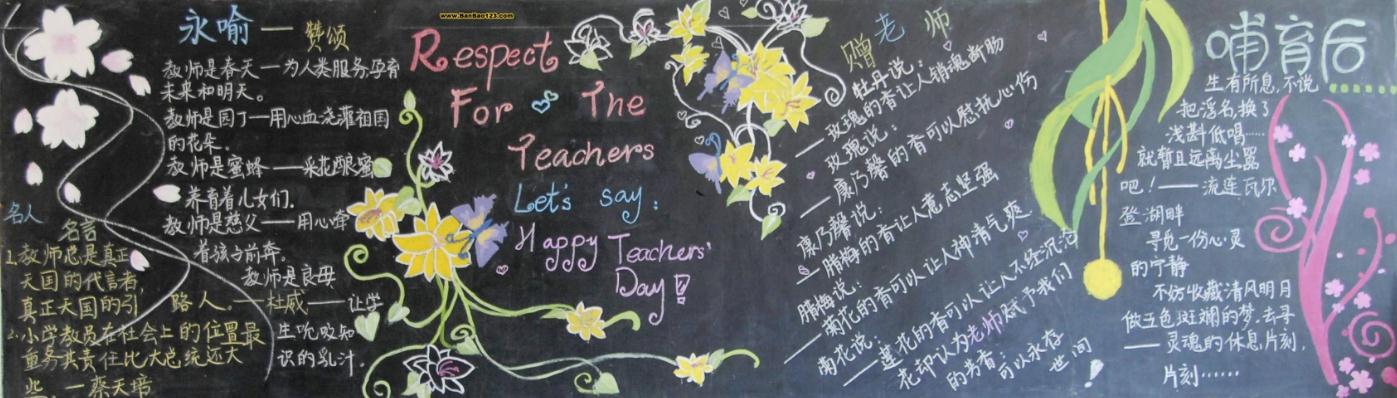 www.BanBao123.com
永喻——赞颂
教师是春天——为人类服务孕育
未来和明天。
教师是园丁——用心血浇灌祖国
的花朵。
教师是蜜蜂——采花酿蜜
养育着儿女们.
教师是慈父——用心牵
着孩子前奔。
教师是良母
——让学
生吮吸知
识的乳汁.
名人
名言
1.教师总是真正
天国的代言者,
真正天国的引
路人.——杜威
2.小学教员在社会上的位置最
重务其责任比大总统还大
些. ——蔡天培
Respect
For The
Teachers
Let's say:
Happy Teachers'
Day!
赠老师
牡丹说:
——玫瑰的香让人销魂断肠
玫瑰说:
——康乃馨的香可以慰抚心伤
康乃馨说:
——腊梅的香让人意志坚强
腊梅说:
——菊花的香可以让人神清气爽
菊花说:
——莲花的香可以让人不经沉沦
花却认为老师赋予我们
的芳香可以永存
世间!
哺育后
生有所息,不说
把浮名,换了
浅斟低唱……
就暂且远离尘嚣
吧!——流连瓦尔
登湖畔
寻觅一份心灵
的宁静
不妨收藏清风明月
做五色斑斓的梦,去寻
——灵魂的休息片刻,
片刻……